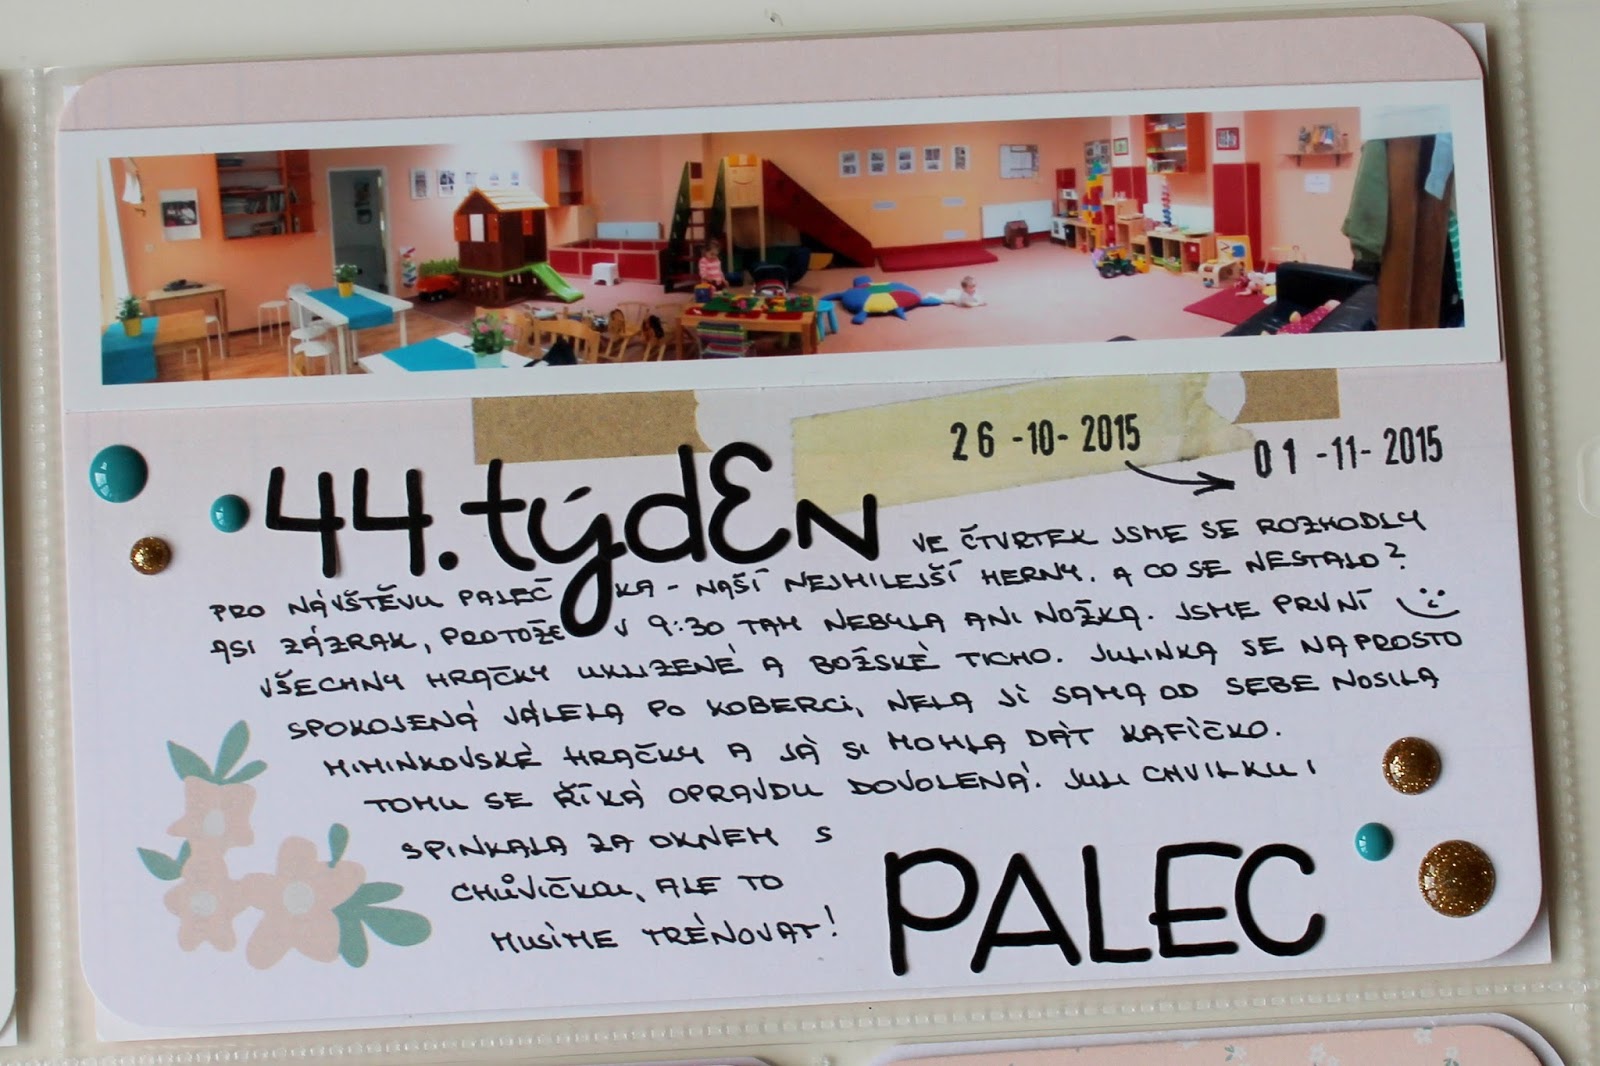 26 -10- 2015
01 -11- 2015
44. týdEN
VE ČTVRTEK JSME SE ROZHODLY
PRO NÁVŠTĚVU PALEČKA - NAŠÍ NEJMILEJŠÍ HERNY. A CO SE NESTALO?
ASI ZÁZRAK, PROTOŽE V 9:30 TAM NEBYLA ANI NOŽKA. JSME PRVNÍ
VŠECHNY HRAČKY UKLIZENÉ A BOŽSKÉ TICHO. JULINKA SE NAPROSTO
SPOKOJENÁ VÁLELA PO KOBERCI, NELA JÍ SAMA OD SEBE NOSILA
MIMINKOVSKÉ HRAČKY A JÁ SI MOHLA DÁT KAFÍČKO.
TOMU SE ŘÍKÁ OPRAVDU DOVOLENÁ. JULI CHVILKU I
SPINKALA ZA OKNEM S
CHŮVIČKOU, ALE TO
MUSÍME TRÉNOVAT!
PALEC